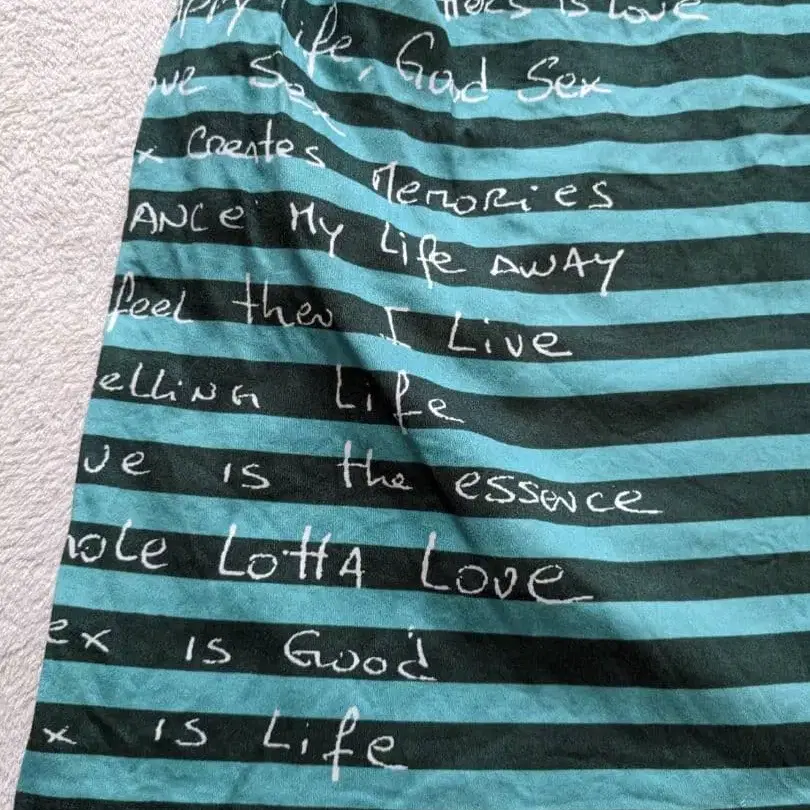 ppy Life, Good Sex
ters is Love
ove Sex
x Creates Memories
ANCE My Life AWAY
feel then I Live
elling Life
ve is the essence
hole Lotta Love
ex is Good
x is Life